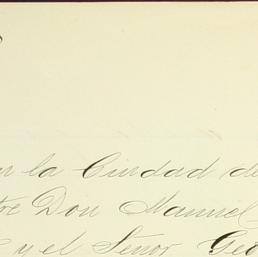 en la Ciudad de
tre Don Manuel
y el Señor Geo